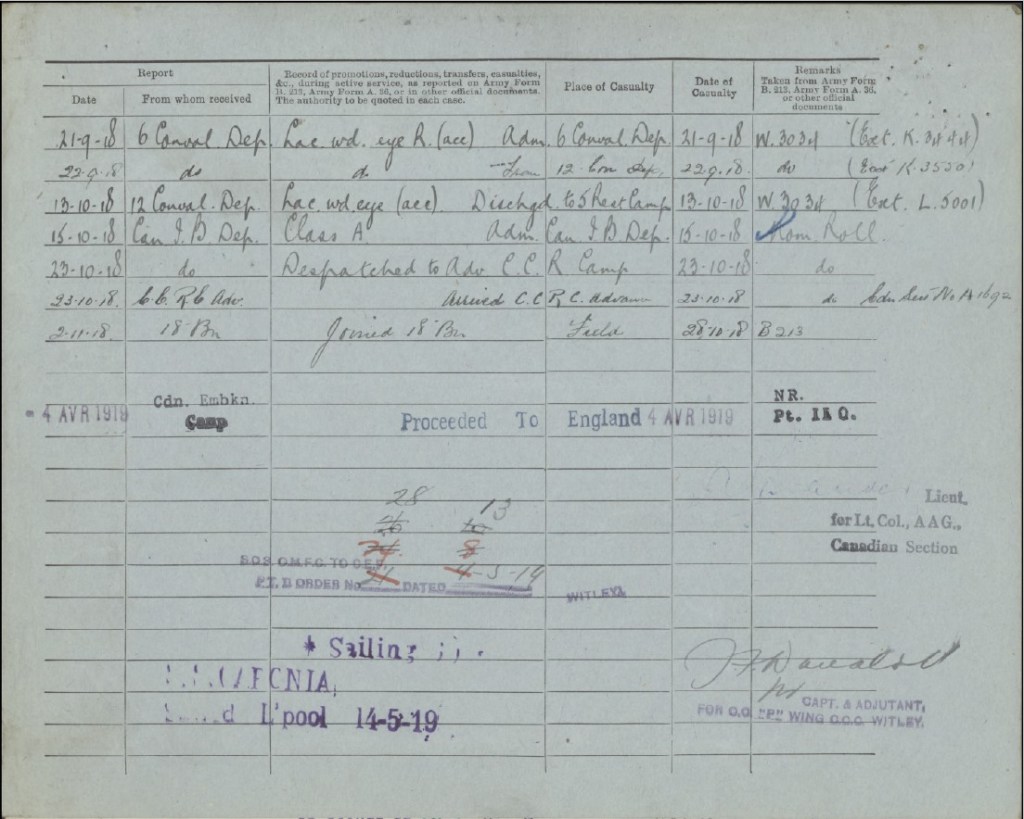 Report
Record of promotions, reductions, transfers, casualties, &c., during active service, as reported on Army Form B. 213, Army Form A. 36, or in other official documents. The authority to be quoted in each case.
Place of Casualty
Date of Casualty
Remarks Taken from Army Form B. 213, Army Form A. 36, or other official documents
Date From whom received
21-9-18 6 Conval Dep. Lac. wd. eye R. (acc) Adm. 6 Conval Dep. 21-9-18 W.3034 (Ext. K. 3444)
22.9.18 do do From 12 Con Dep. 22.9.18 do
13-10-18 12 Conval. Dep. Lac. wd. eye (acc). Dischgd to 5 Rest Camp 13-10-18 W.3034 (Ext. L. 5001)
15-10-18 Can I. B Dep. Class A Adm. Can I. B Dep. 15-10-18 Nom Roll.
23-10-18 do Despatched to Adv C. C. R Camp 23-10-18 do
23.10.18. C.C. R.C Adv. Arrived C.C R.C. 23.10.18 do
2-11-18. 18 Bn Joined 18 Bn Field 28.10.18 B213
- 4 AVR 1919 Cdn. Embkn. Camp Proceeded To England 4 AVR 1919 NR. Pt. II O.
28 13
Lieut.
for Lt. Col., A.A.G.,
Canadian Section
8
S.O.S. O.M.F.C. TO C.E.F.
PT. II ORDER No. 21 DATED 4-5-19
WITLEY.
* Sailing
L'pool 14-5-19
CAPT. & ADJUTANT,
FOR O.C. "P" WING C.C.C. WITLEY.